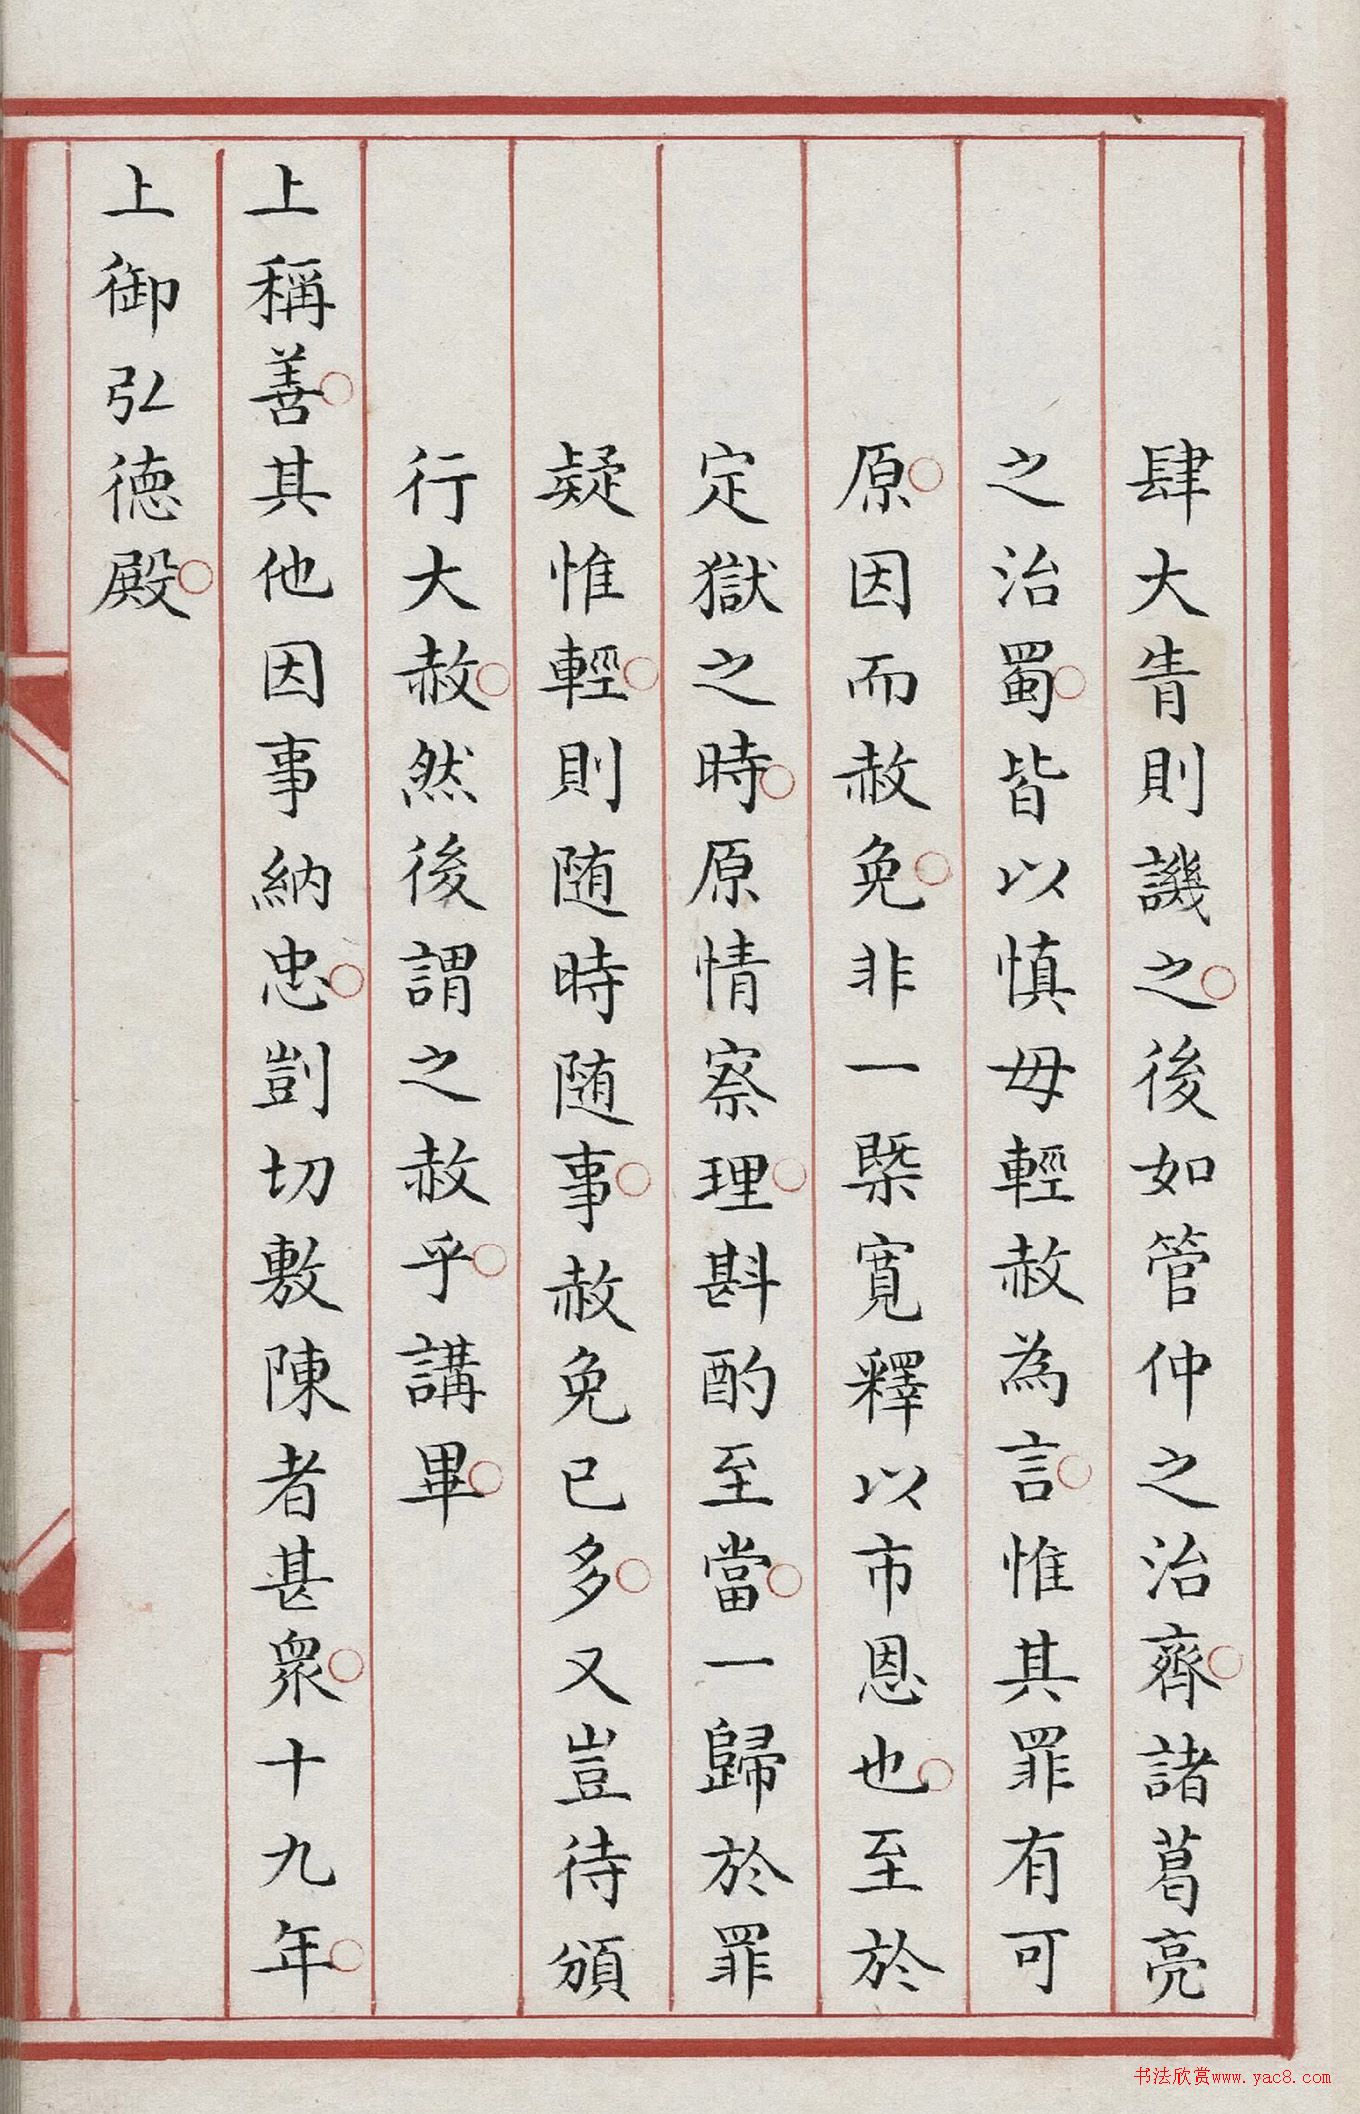 肆大眚則譏之後如管仲之治齊諸葛亮
之治蜀皆以慎毋輕赦為言惟其罪有可
原因而赦免非一槩寬釋以市恩也至於
定獄之時原情察理斟酌至當一歸於罪
疑惟輕則随時随事赦免已多又豈待頒
行大赦然後謂之赦乎講畢
上稱善其他因事納忠剴切敷陳者甚衆十九年
上御弘德殿
书法欣赏www.yac8.com